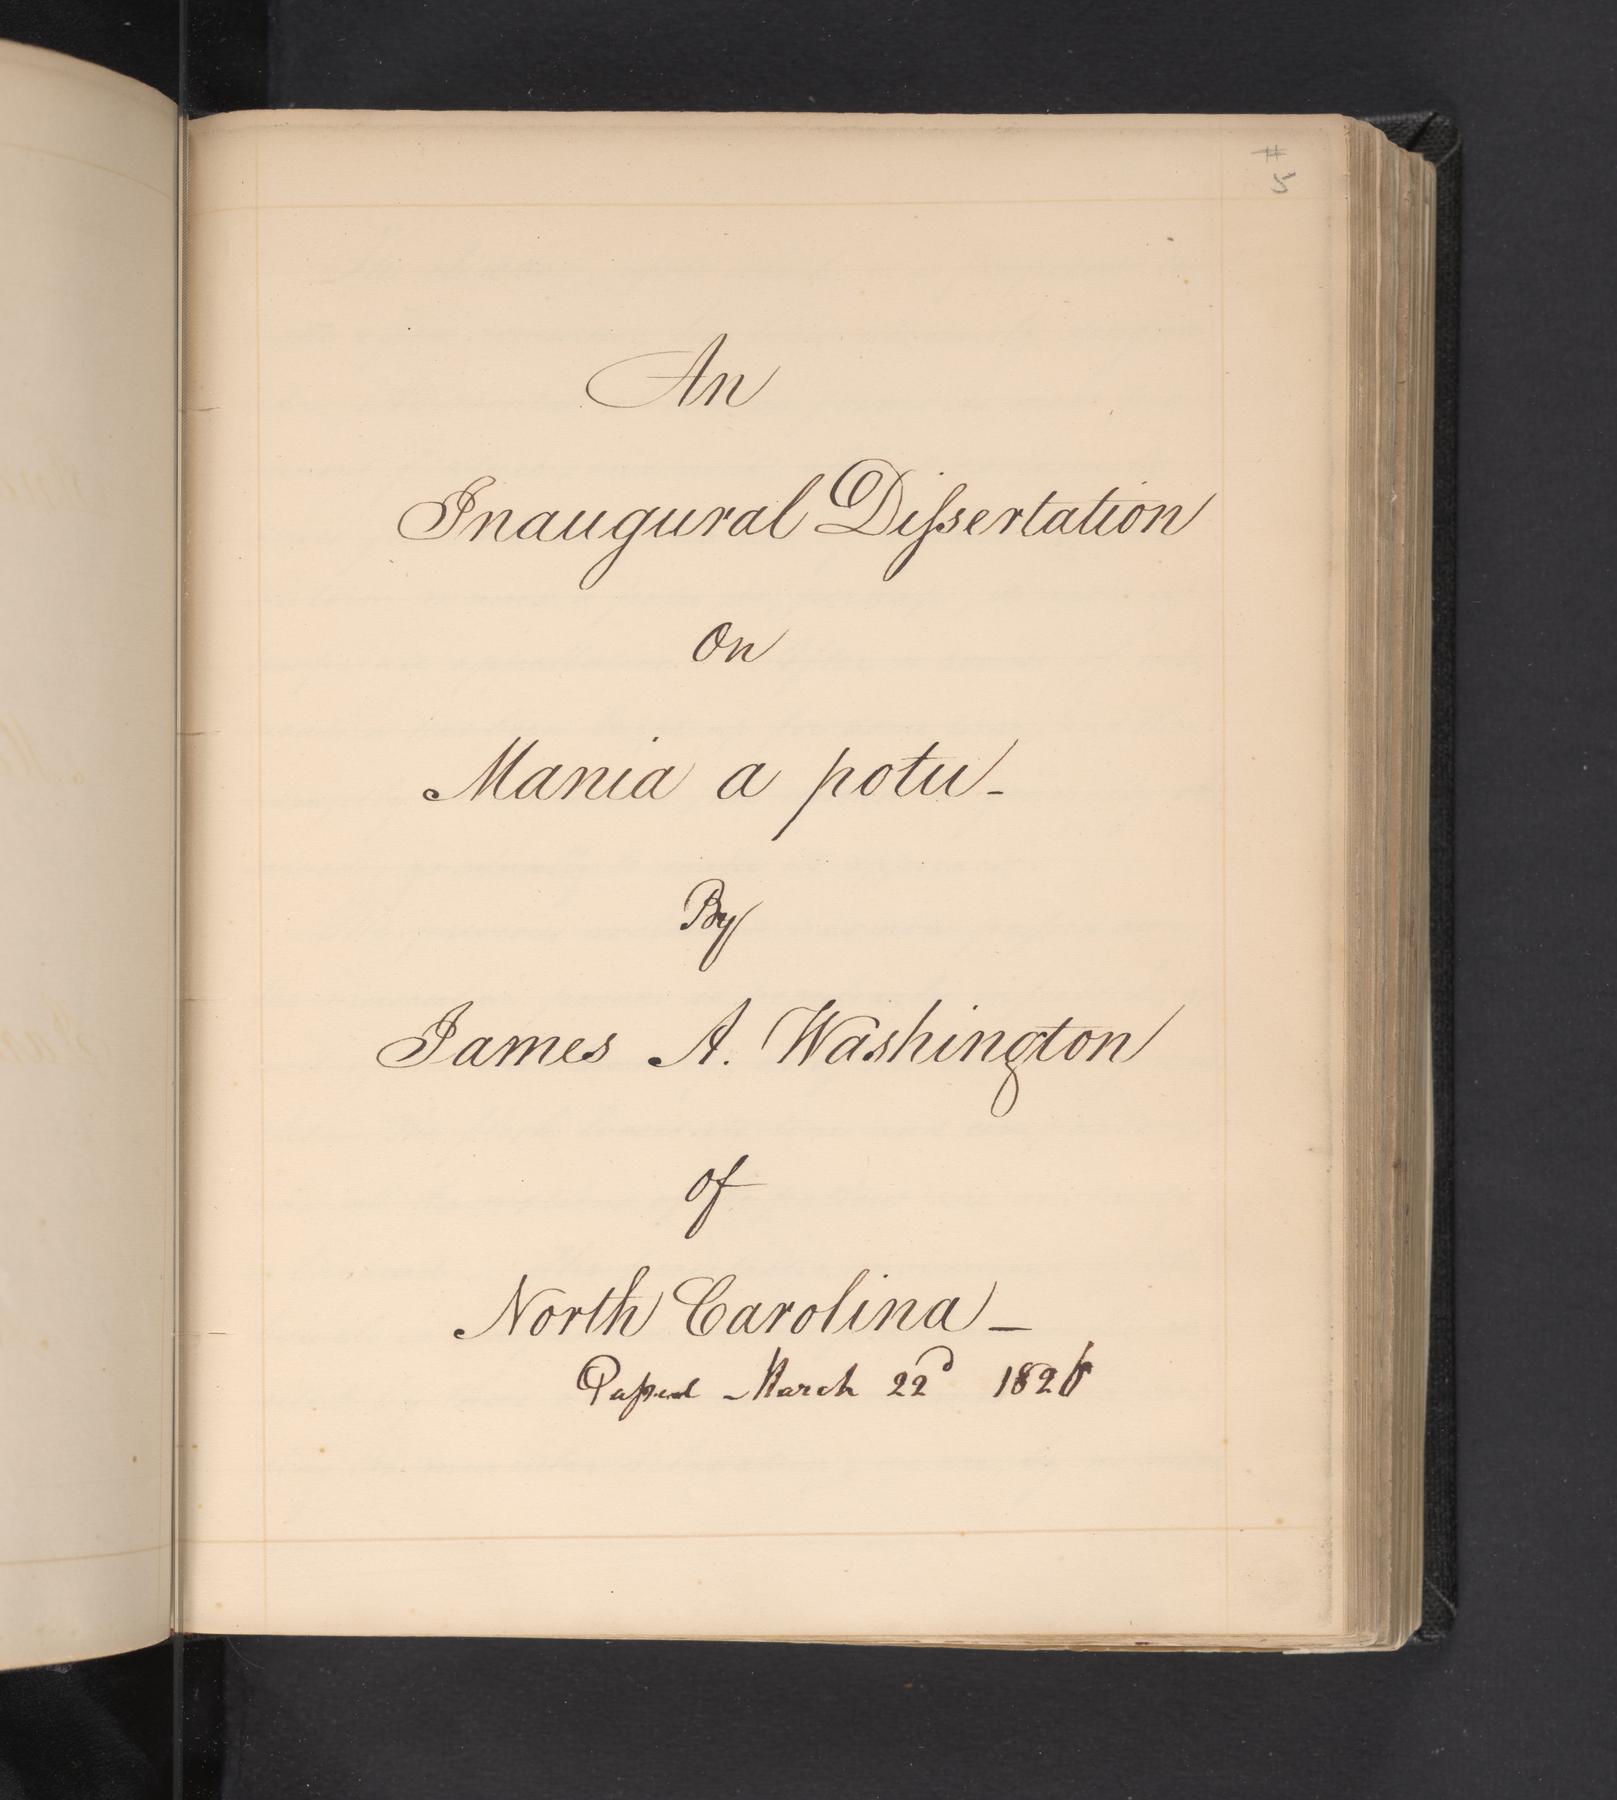 # 5
An
Inaugural Dissertation
On
Mania a potu_
By
James A. Washington
of
North Carolina_
Passed March 22d